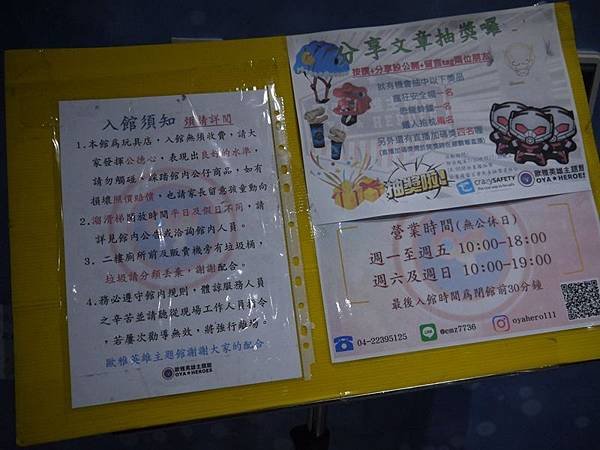 入館須知 須請詳閱
1.本館為玩具店，入館無須收費，請大
家發揮公德心，表現出良好的水準，
請勿觸碰、踩踏館內公仔商品，如有
損壞照價賠償，也請家長留意孩童動向
2.溜滑梯開放時間平日及假日不同，請
詳見館內公告或洽詢館內人員。
3.二樓廁所前及販賣機旁有垃圾桶，
垃圾請分類丟棄，謝謝配合。
4.務必遵守館內規則，體諒服務人員
之辛苦並請聽從現場工作人員指令
，若屢次勸導無效，將強行離場。
歐雅英雄主題館謝謝大家的配合
歐雅英雄主題館
OYA★HEROES
分享文章抽獎囉
按讚+分享設公開+留言tag兩位朋友
就有機會抽中以下獎品
瘋狂安全帽一名
悪龍鈴鐺一名
蟻人抱枕兩名
另外還有直播加碼送四名喔
抽獎啦!
crazySAFETY
歐雅英雄主題館
OYA★HEROES
營業時間(無公休日)
週一至週五 10:00-18:00
週六及週日 10:00-19:00
最後入館時間為閉館前30分鐘
04-22395125
@emz7736
oyahero111